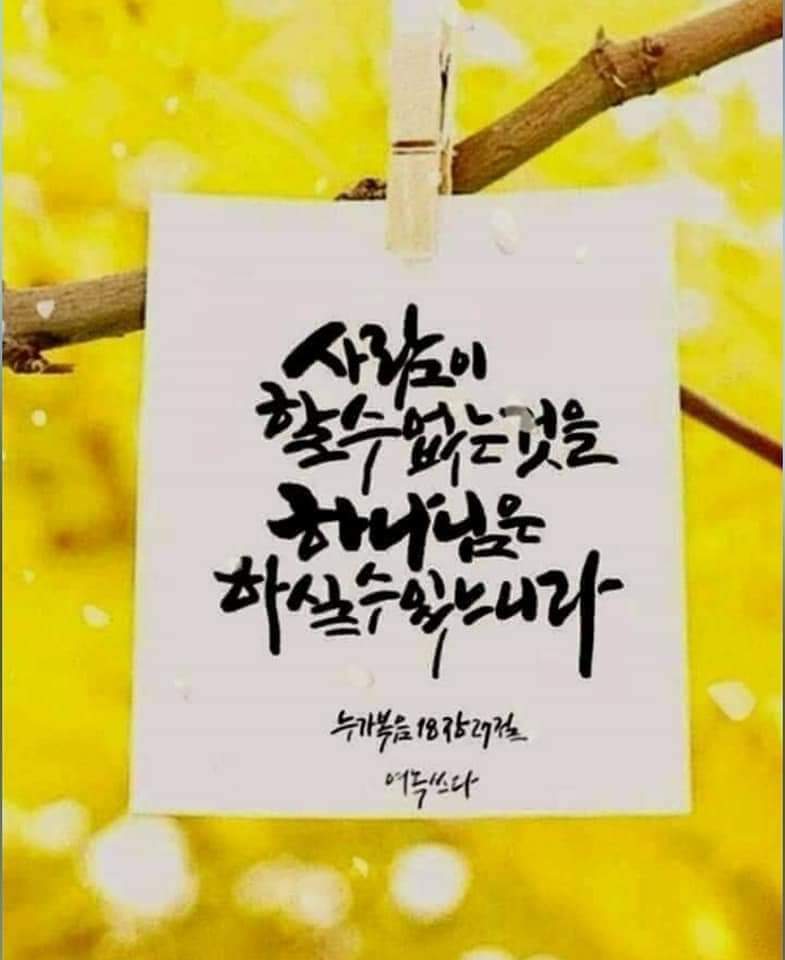 사람이
할 수 없는 것을
하나님은
하실 수 있느니라
누가복음 18장 27절
여녹쓰다